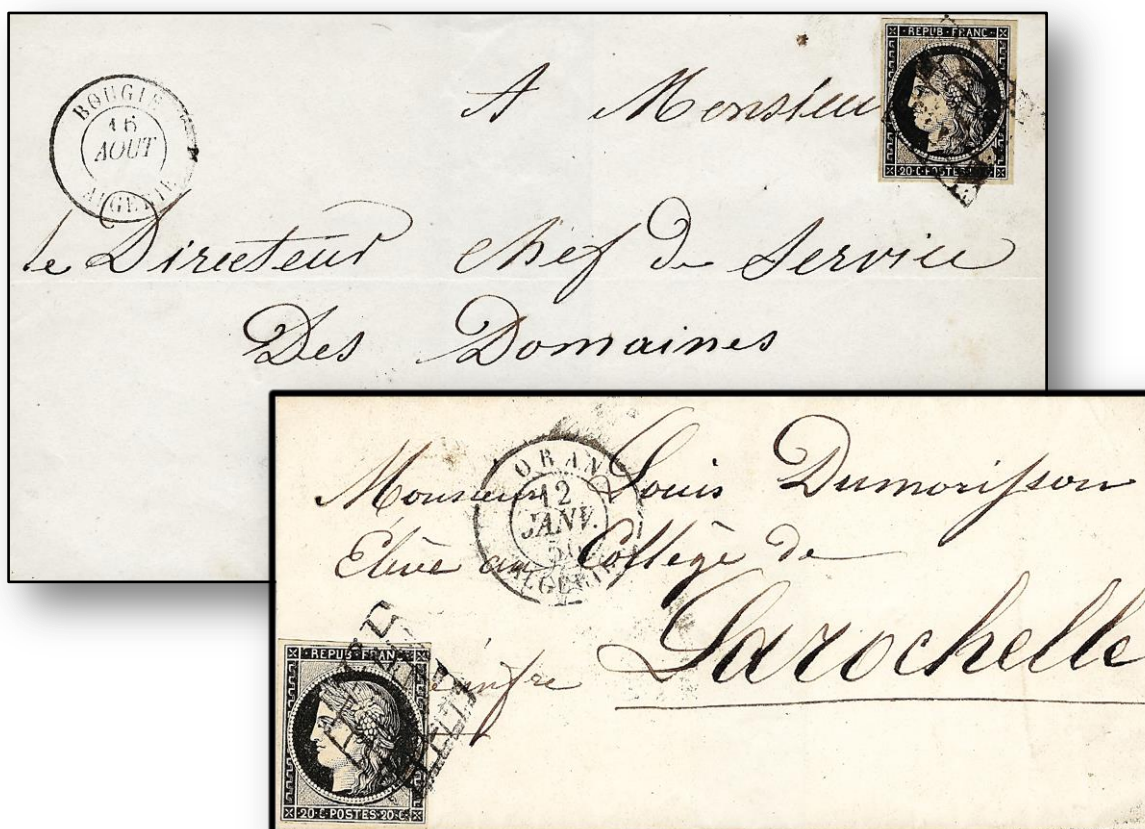 REPUB·FRANC
BOUGIE
16
AOUT
ALGERIE
A Monsieur
20·C·POSTES·20·C
le Directeur chef de Service
Des Domaines
ORAN
12
JANV.
50
ALGERIE
Monsieur Louis Dumorisson
Elève au Collège de
Larochelle
REPUB·FRANC
20·C·POSTES·20·C